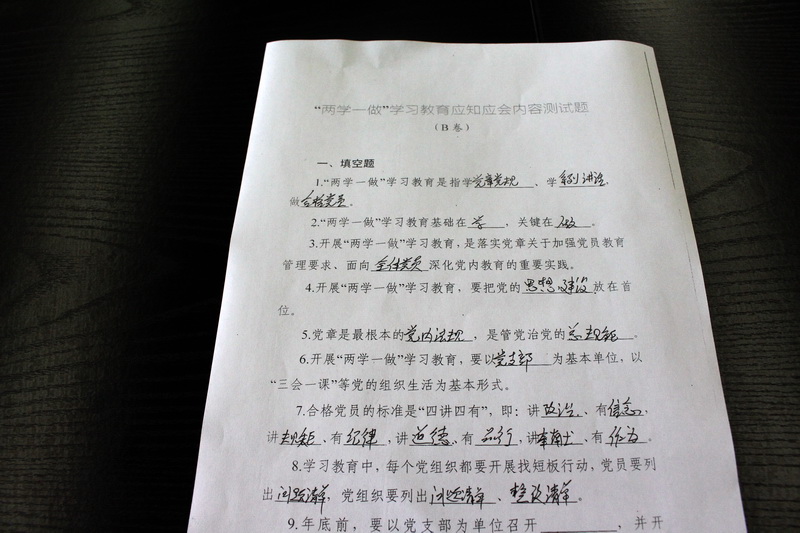 “两学一做”学习教育应知应会内容测试题
（B卷）
一、填空题
1.“两学一做”学习教育是指学党章党规、学系列讲话，
做合格党员。
2.“两学一做”学习教育基础在学，关键在做。
3.开展“两学一做”学习教育，是落实党章关于加强党员教育
管理要求、面向全体党员深化党内教育的重要实践。
4.开展“两学一做”学习教育，要把党的思想建设放在首
位。
5.党章是最根本的党内法规，是管党治党的总规矩。
6.开展“两学一做”学习教育，要以党支部为基本单位，以
“三会一课”等党的组织生活为基本形式。
7.合格党员的标准是“四讲四有”，即：讲政治、有信念，
讲规矩、有纪律，讲道德、有品行，讲奉献、有作为。
8.学习教育中，每个党组织都要开展找短板行动，党员要列
出问题清单，党组织要列出问题清单、整改清单。
9.年底前，要以党支部为单位召开______，并开